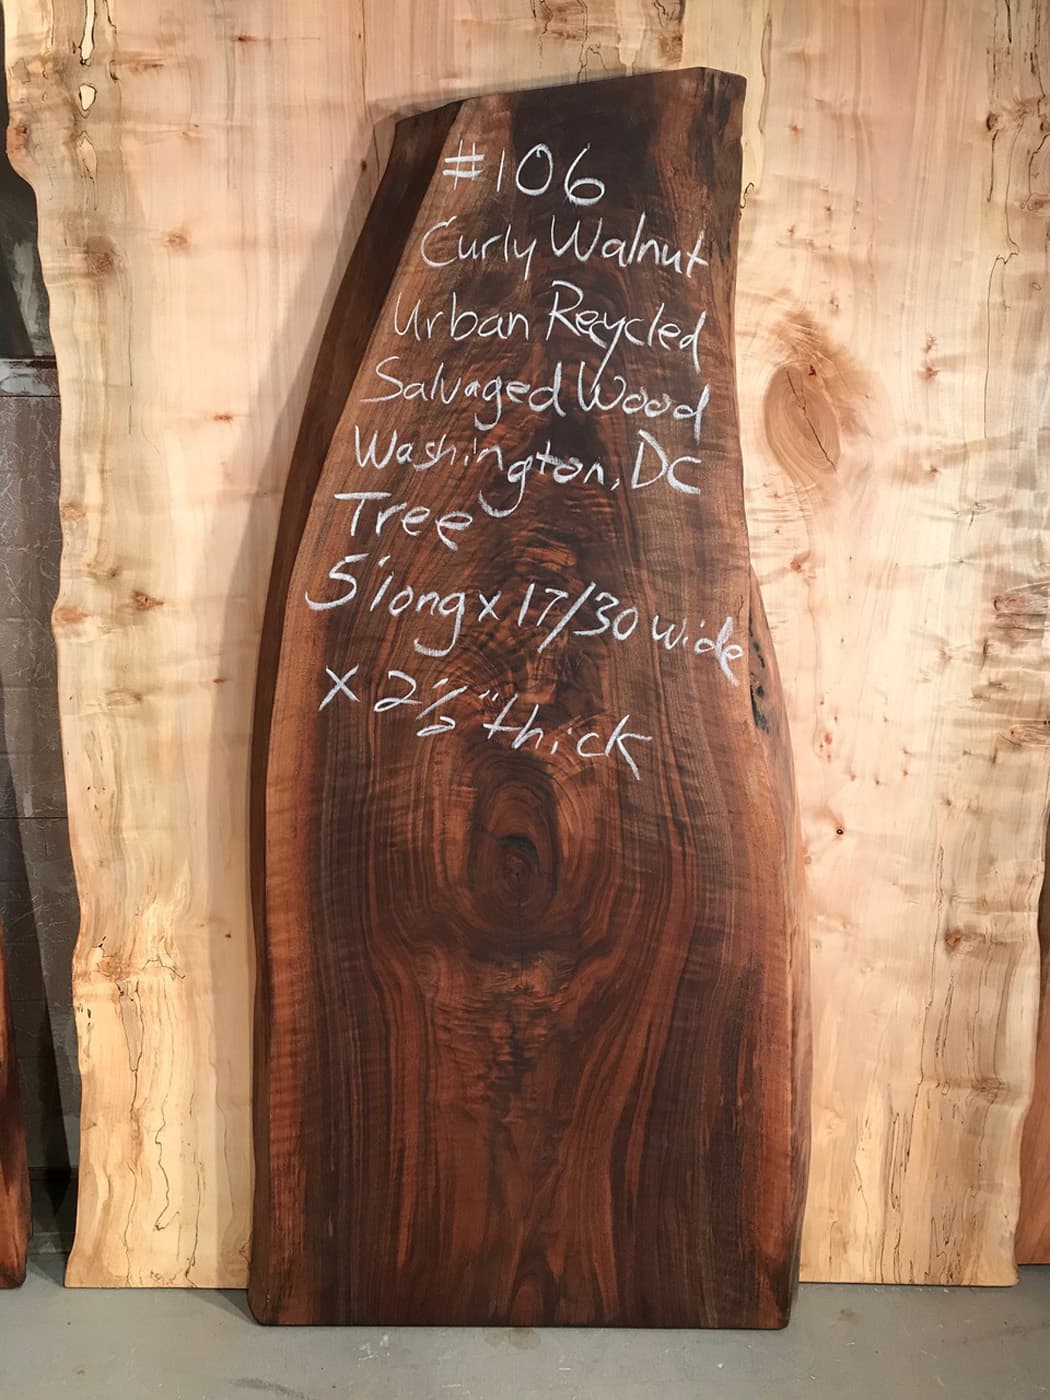 #106
Curly Walnut
Urban Recycled
Salvaged Wood
Washington, DC
Tree
5' long x 17/30 wide
x 2 1/2" thick